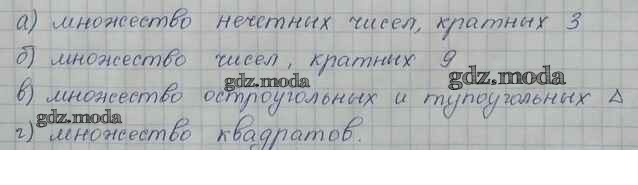 а) множество нечетных чисел, кратных 3
б) множество чисел, кратных 9
gdz.moda gdz.moda
в) множество остроугольных и тупоугольных Δ
gdz.moda
г) множество квадратов.